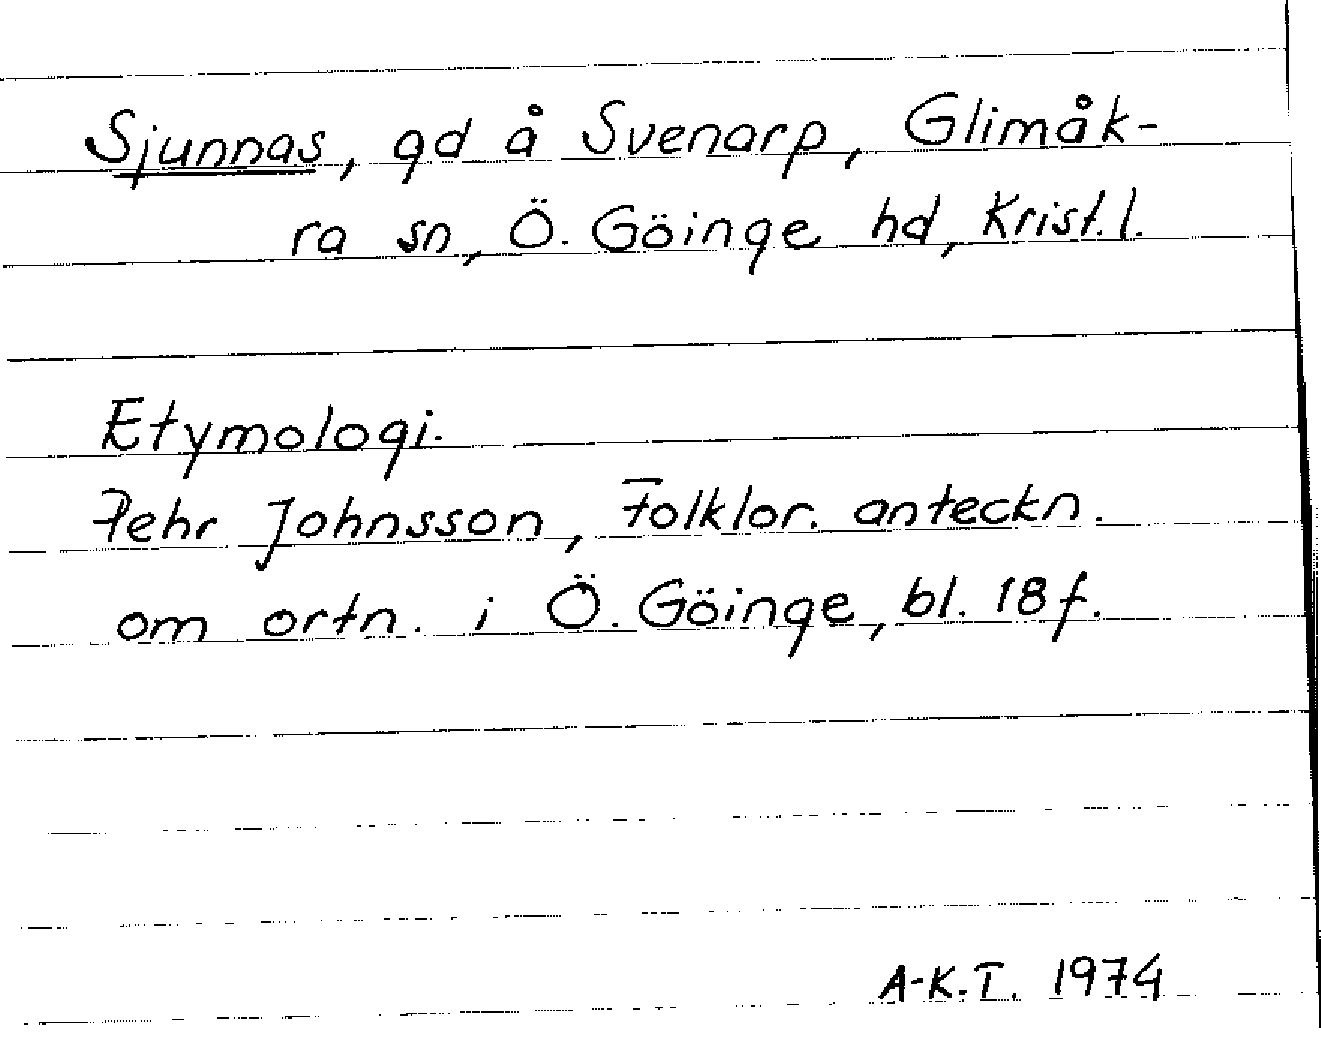 Sjunnas, gd å Svenarp, Glimåk-
ra sn, Ö. Göinge hd, Krist. l.
Etymologi.
Pehr Johnsson, Folklor. anteckn.
om ortn. i Ö. Göinge, bl. 18 f.
A-K.T. 1974